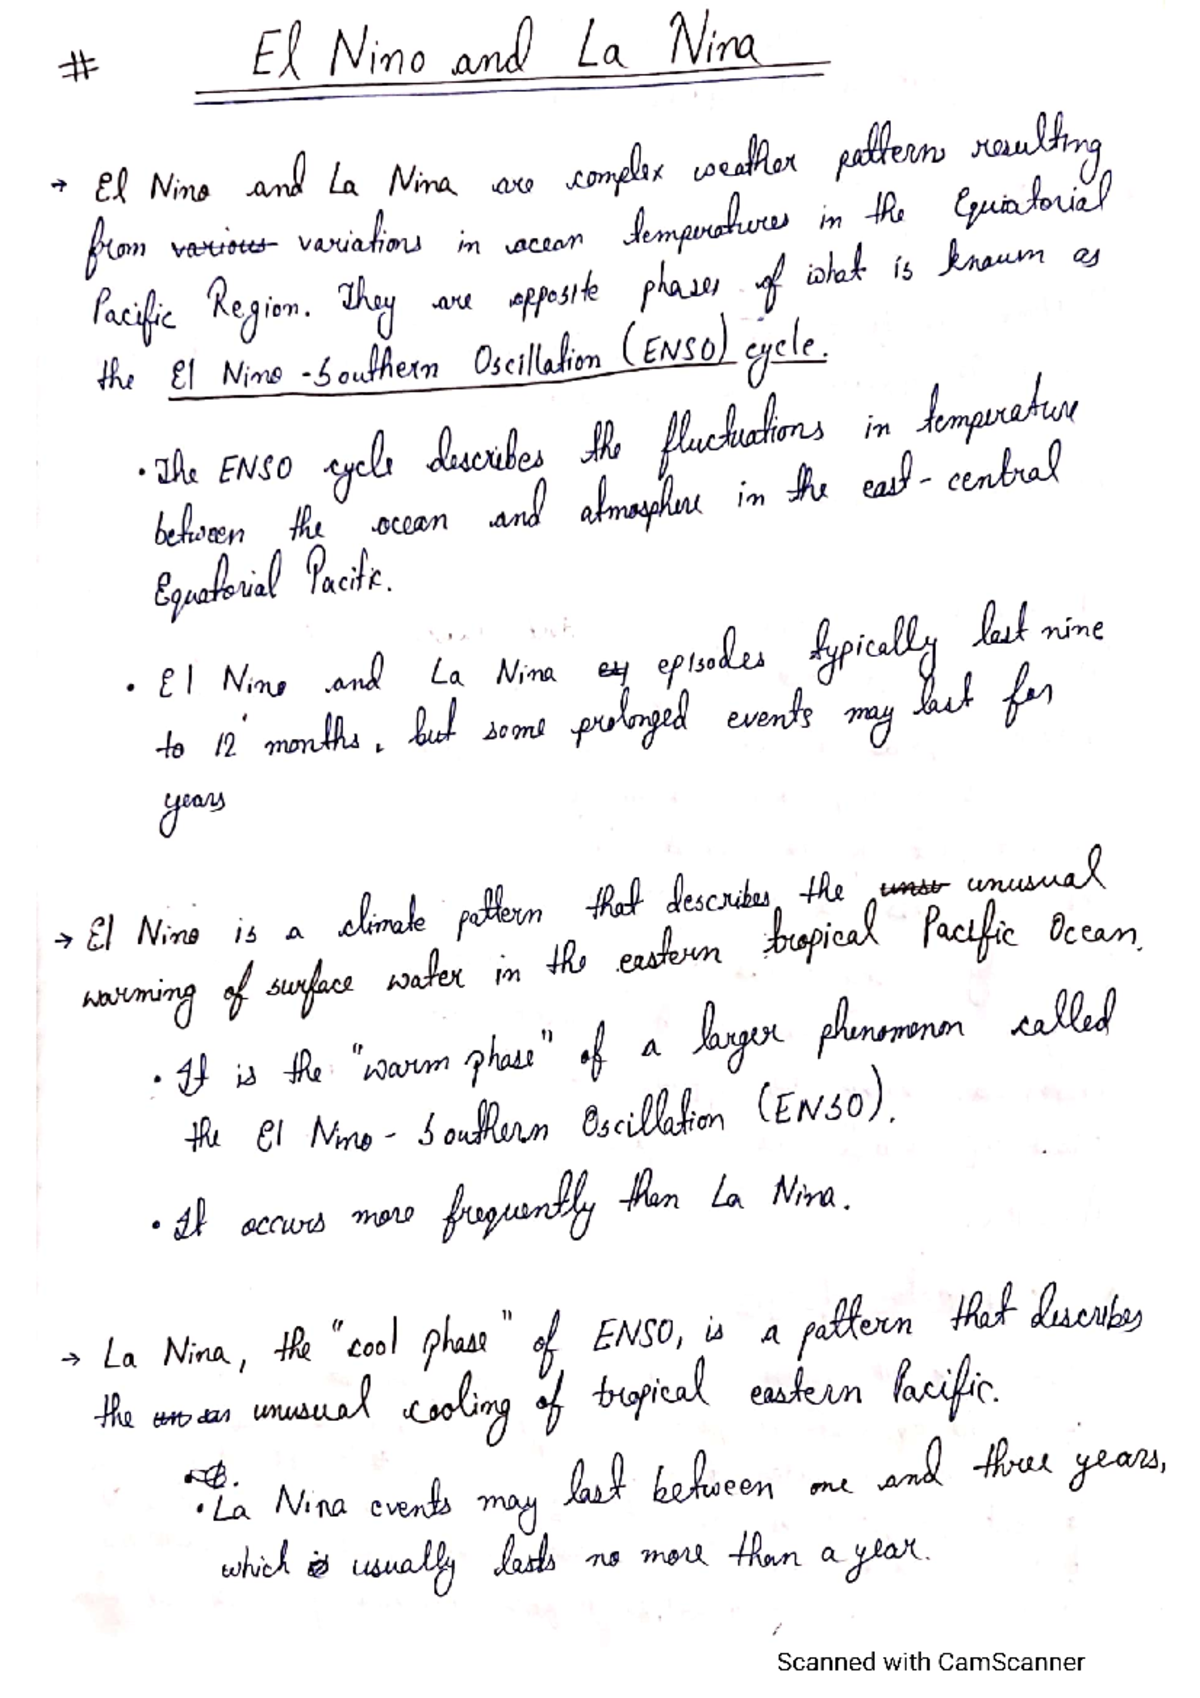 # El Nino and La Nina
→ El Nino and La Nina are complex weather patterns resulting
from various variations in ocean temperatures in the Equiatorial
Pacific Region. They are opposite phases of what is known as
the El Nino - Southern Oscillation (ENSO) cycle.
• The ENSO cycle describes the fluctuations in temperature
between the ocean and atmosphere in the east - central
Equatorial Pacific.
• El Nino and La Nina ey episodes typically last nine
to 12 months, but some prolonged events may last for
years
→ El Nino is a climate pattern that describes the unsu unusual
warming of surface water in the eastern tropical Pacific Ocean.
• It is the "warm phase" of a larger phenomenon called
the El Nino - Southern Oscillation (ENSO).
• It occurs more frequently than La Nina.
→ La Nina, the "cool phase" of ENSO, is a pattern that describes
the unusual cooling of tropical eastern Pacific.
• La Nina events may last between one and three years,
which is usually lasts no more than a year.
Scanned with CamScanner